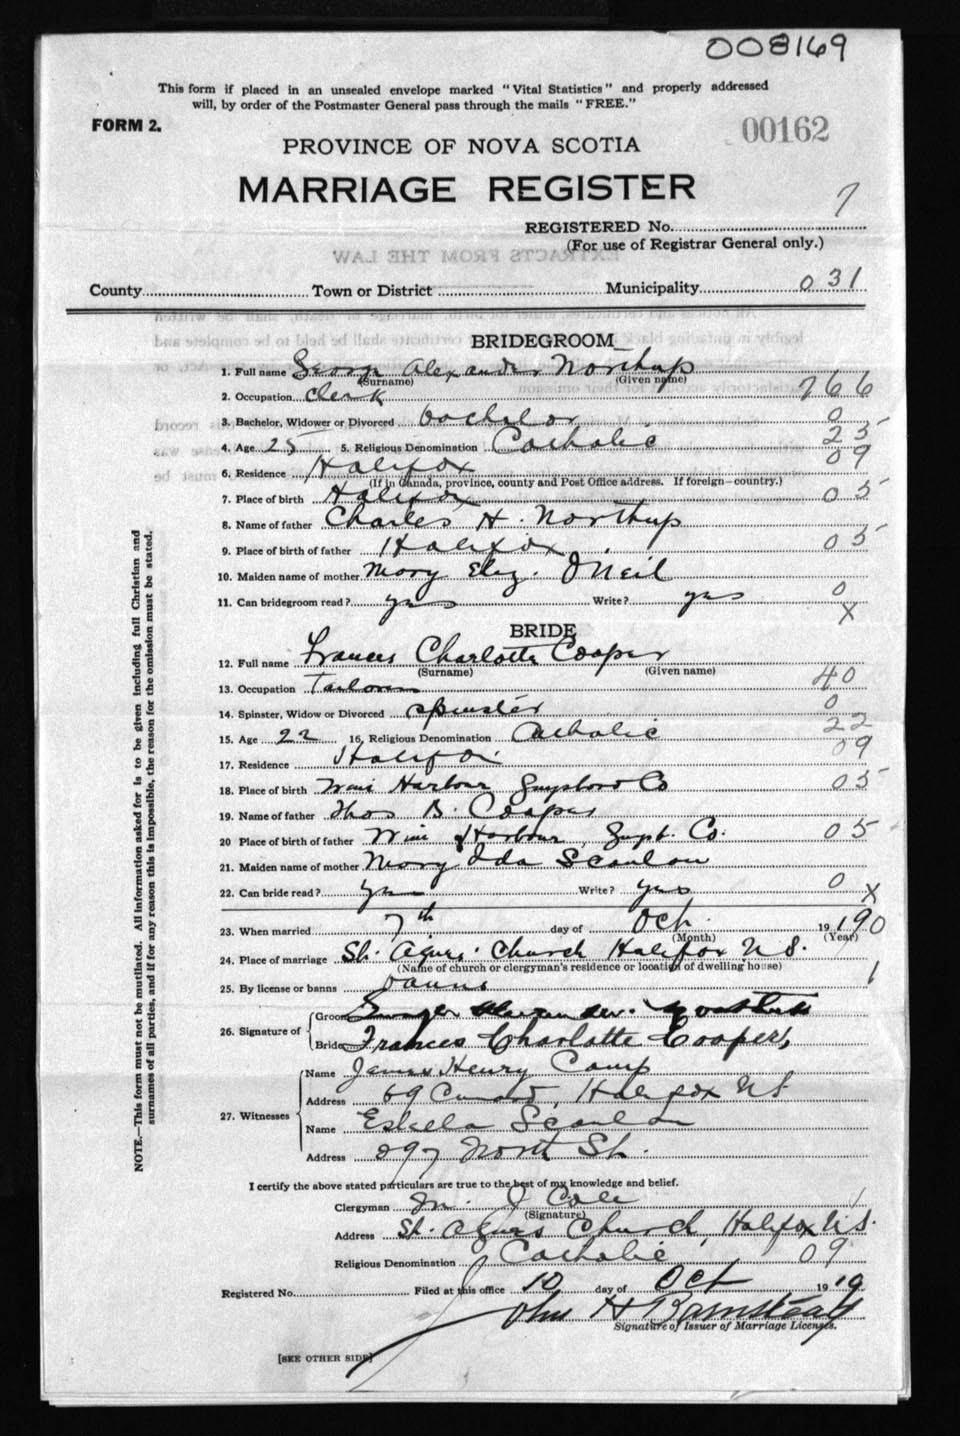 008169
This form if placed in an unsealed envelope marked "Vital Statistics" and properly addressed
will, by order of the Postmaster General pass through the mails "FREE."
FORM 2.
00162
PROVINCE OF NOVA SCOTIA
MARRIAGE REGISTER
7
REGISTERED No.
(For use of Registrar General only.)
EXTRACTS FROM THE LAW
County Town or District Municipality 031
BRIDEGROOM
1. Full name George Alexander Northup
(Surname) (Given name)
2. Occupation Clerk 766
3. Bachelor, Widower or Divorced bachelor 0
4. Age 25 5. Religious Denomination Catholic 25
6. Residence Halifax 09
(If in Canada, province, county and Post Office address. If foreign—country.)
7. Place of birth Halifax 05
8. Name of father Charles H. Northup
9. Place of birth of father Halifax 05
10. Maiden name of mother Mary Eliz. O'Neil
11. Can bridegroom read? yes Write? yes 0
X
BRIDE
12. Full name Frances Charlotte Cooper
(Surname) (Given name)
13. Occupation 40
14. Spinster, Widow or Divorced spinster 0
15. Age 22 16. Religious Denomination Catholic 22
17. Residence Halifax 09
18. Place of birth Wine Harbour Guysboro Co 05
19. Name of father Thos B. Cooper
20 Place of birth of father Wine Harbour, Guys. Co. 05
21. Maiden name of mother Mary Ida Scanlan
22. Can bride read? yes Write? yes 0 X
23. When married 7th day of Oct. 19 19 0
(Month) (Year)
24. Place of marriage St. Agnes' Church Halifax N.S.
(Name of church or clergyman's residence or location of dwelling house)
25. By license or banns banns 1
26. Signature of Groom George Alexander Northup
Bride Frances Charlotte Cooper,
27. Witnesses
Name James Henry Camp
Address 69 Cunard, Halifax N.S
Name Estella Scanlan
Address 297 North St.
I certify the above stated particulars are true to the best of my knowledge and belief.
Clergyman J Cole
(Signature)
Address St. Agnes Church, Halifax N.S.
Religious Denomination Catholic 09
Registered No. Filed at this office 10 day of Oct 19 19
John H Barnstead
Signature of Issuer of Marriage Licenses.
[SEE OTHER SIDE]
NOTE.—This form must not be mutilated. All information asked for is to be given including full Christian and
surnames of all parties, and if for any reason this is impossible, the reason for the omission must be stated.